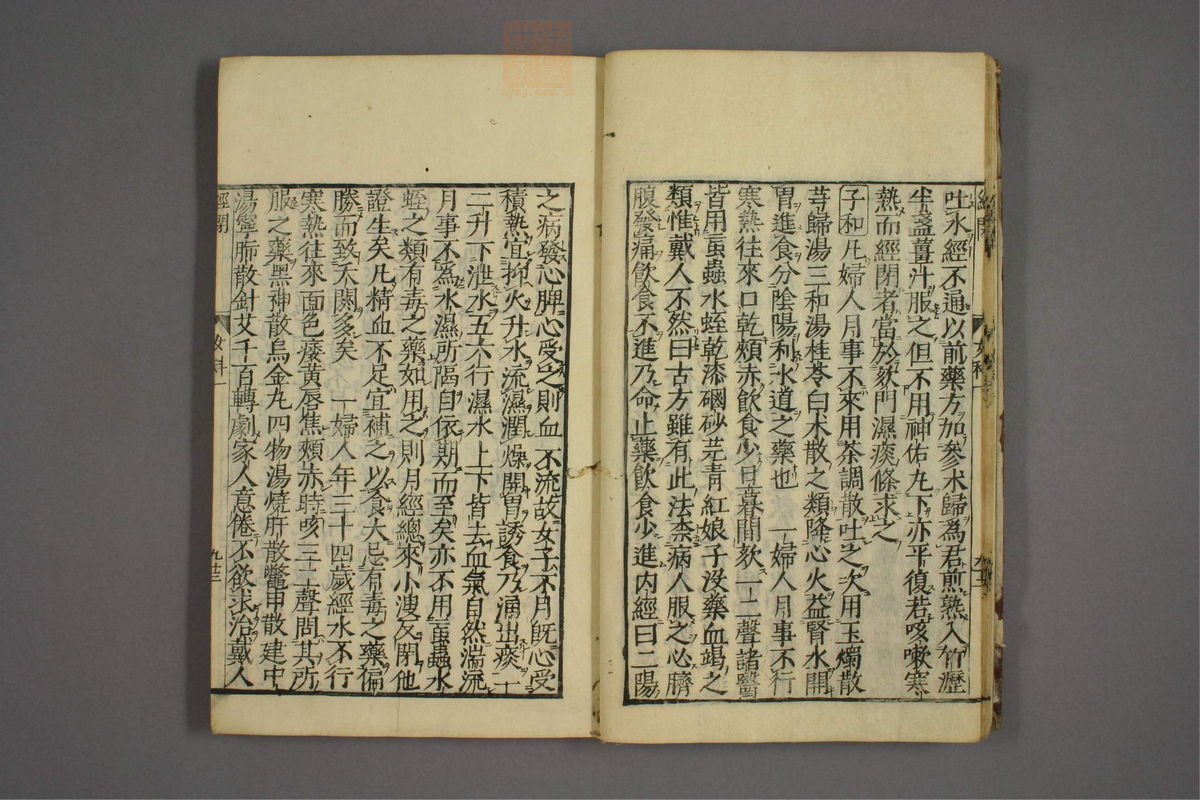 吐水經不通以前藥方加參术歸爲君煎熟入竹瀝
半盞薑汁服之但不用神佑丸下亦平復若咳嗽寒
熱而經閉者當於欬門濕痰條求之
子和凡婦人月事不來用茶調散吐之次用玉燭散
芎歸湯三和湯桂苓白术散之類降心火益腎水開
胃進食分陰陽利水道之藥也 一婦人月事不行
寒熱往來口乾頰赤飲食少旦暮間欬一二聲諸醫
皆用䖟蟲水蛭乾漆硇砂芫青紅娘子沒藥血竭之
類惟戴人不然曰古方雖有此法柰病人服之心臍
腹發痛飲食不進乃命止藥飲食少進内經曰二陽
之病發心脾心受之則血不流故女子不月既心受
積熱宜抑火升水流濕潤燥開胃誘食乃涌出痰一
二升下泄水五六行濕水上下皆去血氣自然湍流
月事不爲水濕所隔自依期而至矣亦不用䖟蟲水
蛭之類有毒之藥如用之則月經總來小溲反閉他
證生矣凡精血不足宜補之以食大忌有毒之藥偏
勝而致夭閼多矣 一婦人年三十四歲經水不行
寒熱往來面色痿黃唇焦頰赤時咳三二聲問其所
服之藥黑神散烏金丸四物湯燒肝散鱉甲散建中
湯寧肺散針艾千百轉劇家人意倦不欲求治戴人
經閉
女科一
九十三